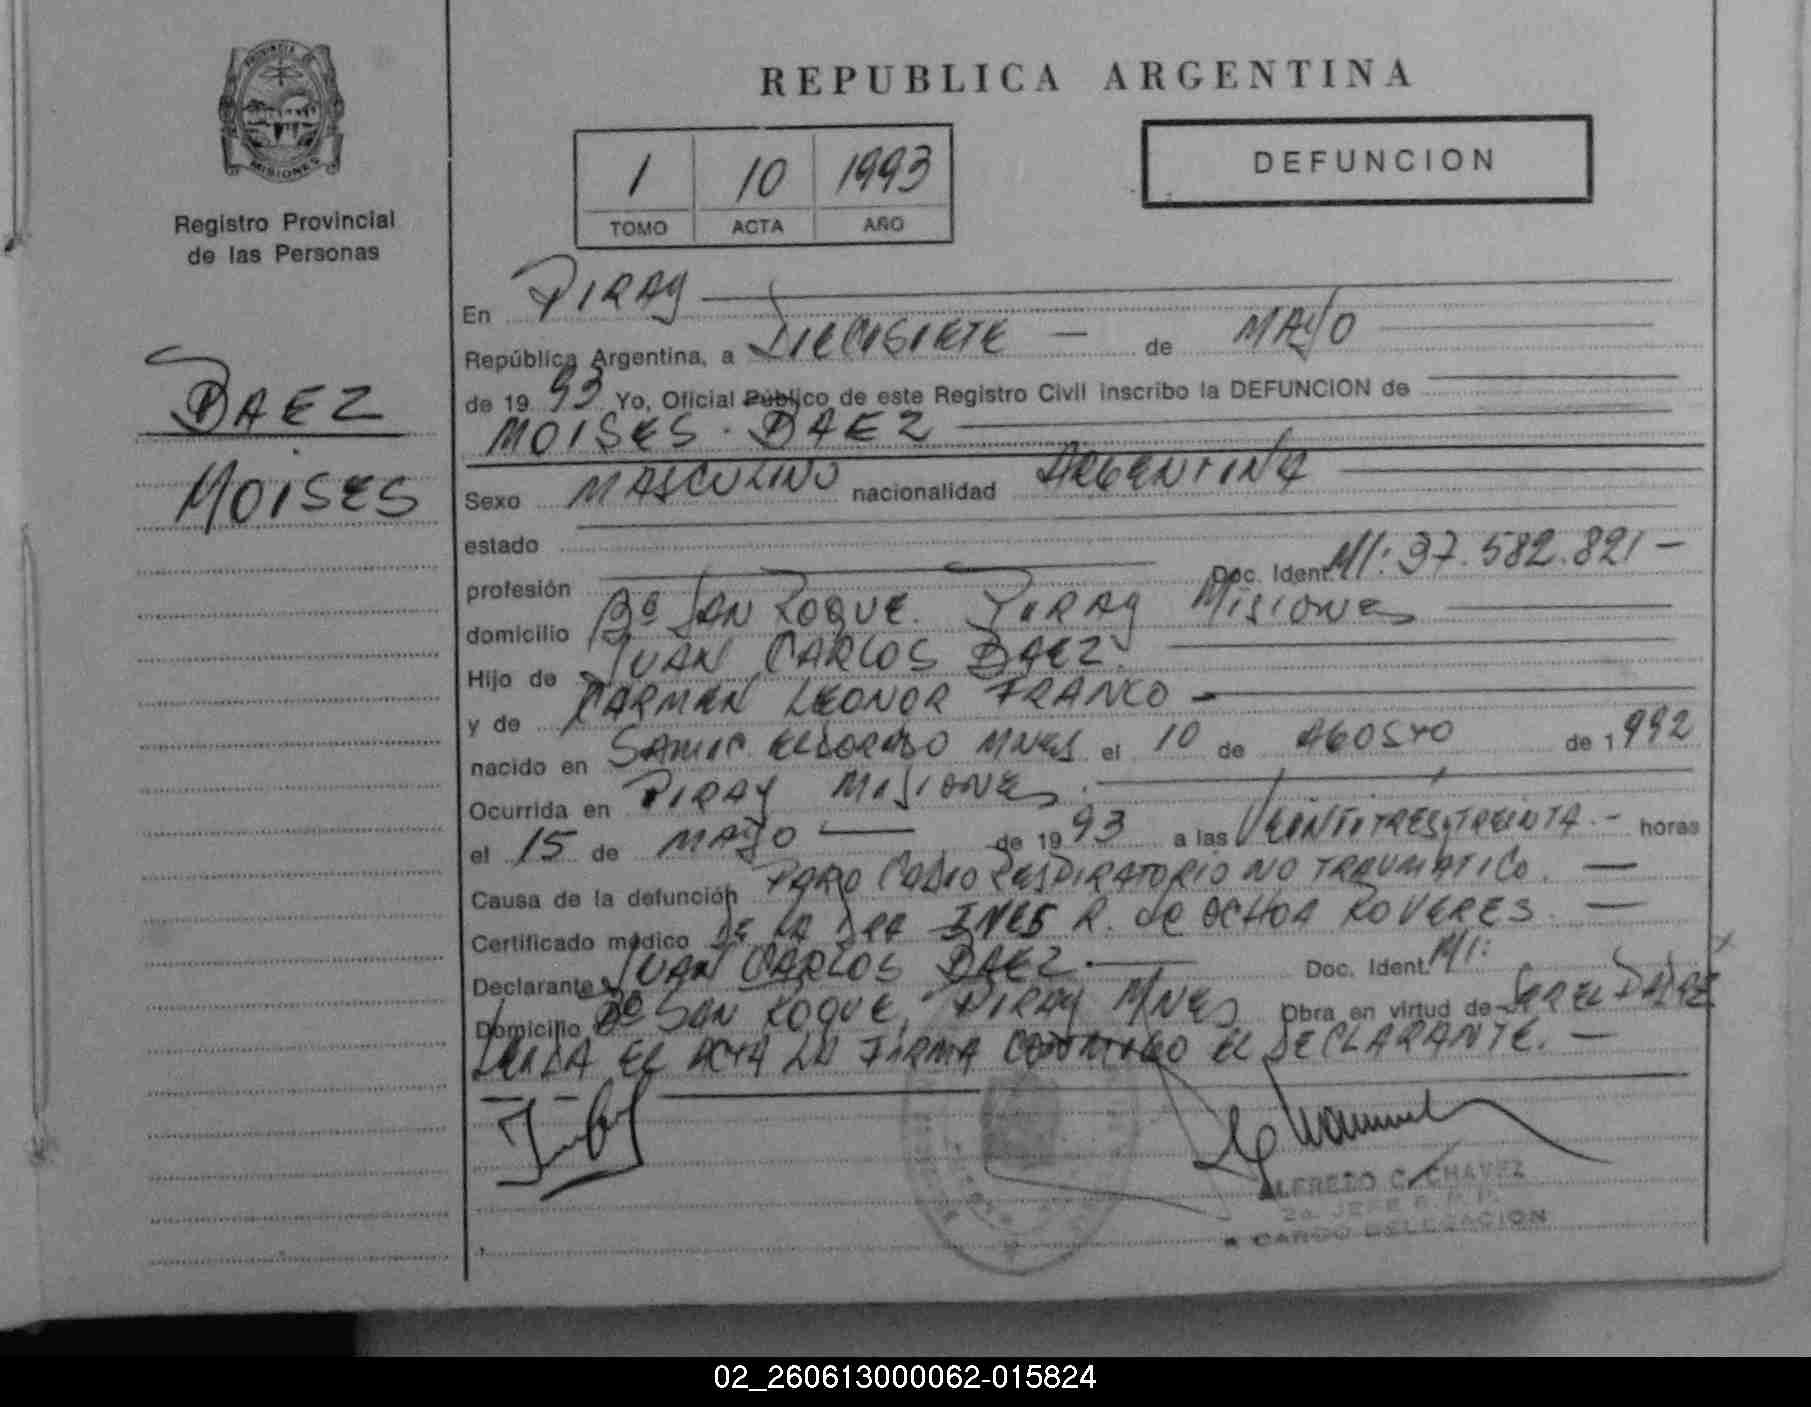 REPUBLICA ARGENTINA
PROVINCIA
MISIONES
Registro Provincial
de las Personas
1 10 1993
TOMO ACTA AÑO
DEFUNCION
BAEZ
MOISES
En PIRAY
República Argentina, a DIECISIETE — de MAYO
de 19 93 Yo, Oficial Público de este Registro Civil inscribo la DEFUNCION de
MOISES. BAEZ
Sexo MASCULINO nacionalidad ARGENTINA
estado
profesión Doc. Ident. MI: 37.582.821 —
domicilio Bº SAN ROQUE. PIRAY MISIONES
Hijo de JUAN CARLOS BAEZ.
y de CARMEN LEONOR FRANCO —
nacido en SAMIC ELDORADO MNES el 10 de AGOSTO de 1992
Ocurrida en PIRAY MISIONES.
el 15 de MAYO — de 19 93 a las VEINTITRES,TREINTA.- horas
Causa de la defunción PARO CADIO RESPIRATORIO NO TRAUMATICO. —
Certificado médico DE LA DRA INES R. de OCHOA ROVERES. —
Declarante JUAN CARLOS BAEZ. — Doc. Ident. MI:
Domicilio Bº SAN ROQUE, PIRAY MNES Obra en virtud de SER EL PADRE
LEIDA EL ACTA LA FIRMA CONMIGO EL DECLARANTE. —
ALFREDO C. CHAVEZ
2o. JEFE R. P. P.
A CARGO DELEGACION
02_260613000062-015824